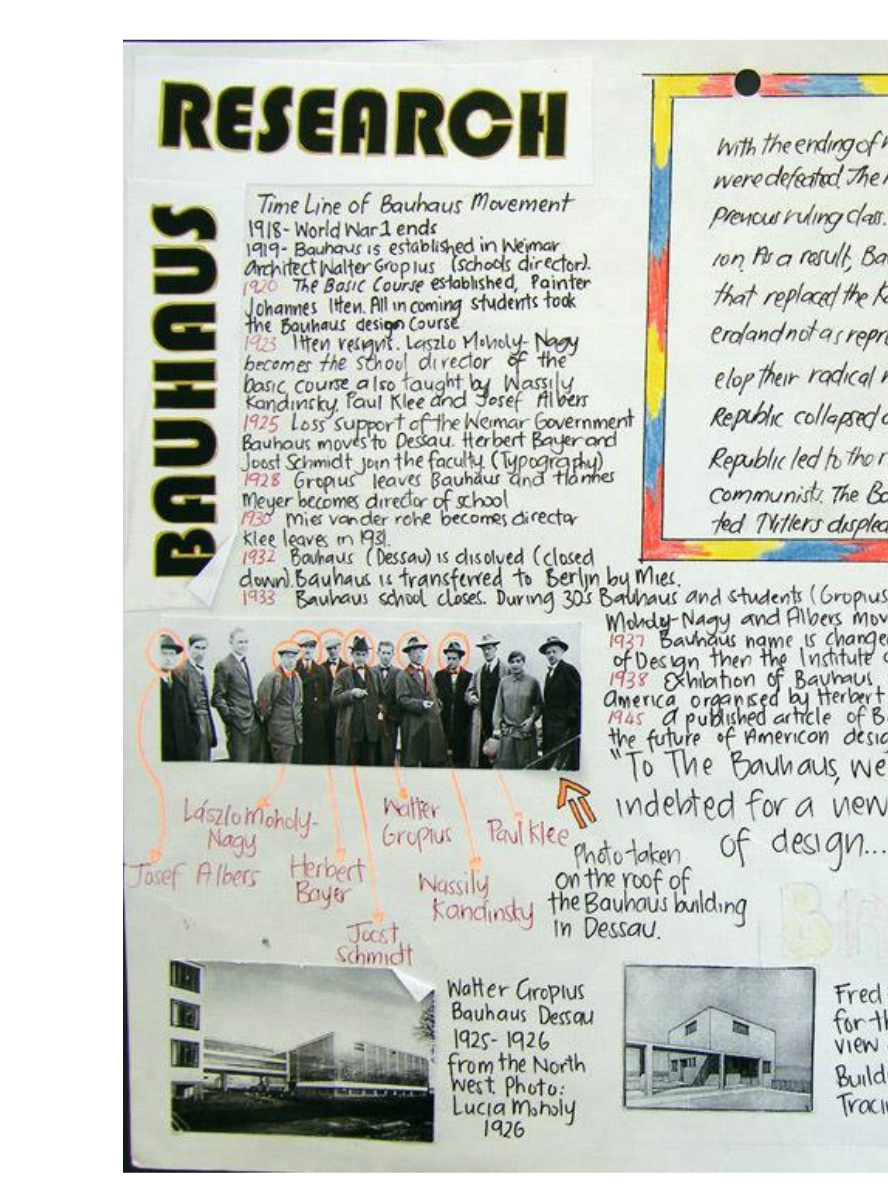 RESEARCH
BAUHAUS
Time Line of Bauhaus Movement
1918- World War 1 ends
1919- Bauhaus is established in Weimar
Architect Walter Gropius (schools director).
1920 The Basic Course established, Painter
Johannes Itten. All in coming students took
the Bauhaus design Course
1923 Itten resigns. Laszlo Moholy-Nagy
becomes the school director of the
basic course also taught by Wassily
Kandinsky, Paul Klee and Josef Albers
1925 Loss support of the Weimar Government
Bauhaus moves to Dessau. Herbert Bayer and
Joost Schmidt join the faculty. (Typography)
1928 Gropius leaves Bauhaus and Hannes
Meyer becomes director of school
1930 Mies van der rohe becomes director
Klee leaves in 1931.
1932 Bauhaus (Dessau) is disolved (closed
down). Bauhaus is transferred to Berlin by Mies.
1933 Bauhaus school closes. During 30's Bauhaus and students (Gropius
Moholy-Nagy and Albers mov
1937 Bauhaus name is change
of Design then the Institute
1938 Exhibition of Bauhaus
America organised by Herbert
1945 a published article of B
the future of American desig
"To The Bauhaus, we
indebted for a new
of design...
With the ending of
were defeated. The
Previous ruling class.
ion. As a result, Ba
that replaced the K
eraland not as repr
elop their radical
Republic collapsed
Republic led to the r
communists. The Ba
ted Hitlers
László Moholy-
Nagy
Walter
Gropius
Paul Klee
Josef Albers
Herbert
Bayer
Wassily
Kandinsky
Joost
Schmidt
Photo taken
on the roof of
the Bauhaus building
in Dessau.
Walter Gropius
Bauhaus Dessau
1925-1926
from the North
West. Photo:
Lucia Moholy
1926
Fred
for th
view
Build
Traci